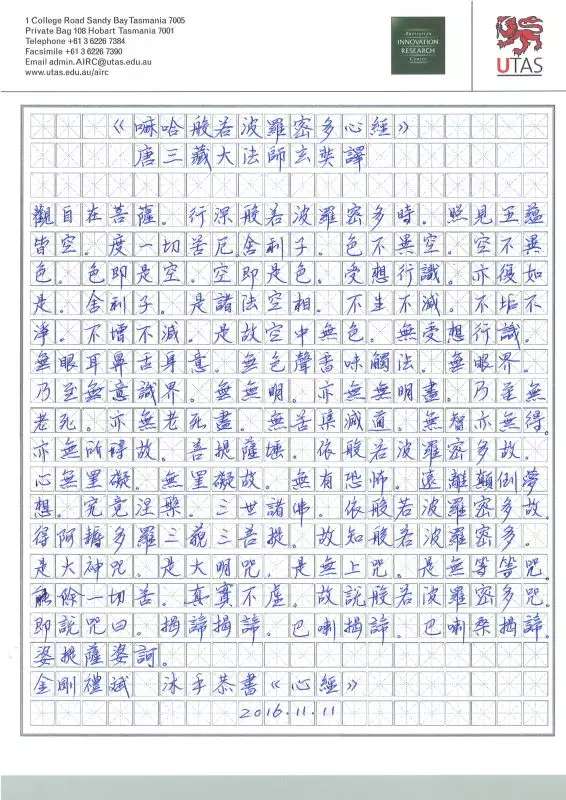 1 College Road Sandy Bay Tasmania 7005
Private Bag 108 Hobart Tasmania 7001
Telephone +61 3 6226 7384
Facsimile +61 3 6226 7390
Email admin.AIRC@utas.edu.au
www.utas.edu.au/airc
Australian
INNOVATION
RESEARCH
Centre
UTAS
《嘛哈般若波羅密多心經》
唐三藏大法師玄奘譯
觀自在菩薩。行深般若波羅密多時。照見五蘊
皆空。度一切苦厄舍利子。色不異空。空不異
色。色即是空。空即是色。受想行識。亦復如
是。舍利子。是諸法空相。不生不滅。不垢不
淨。不增不減。是故空中無色。無受想行識。
無眼耳鼻舌身意。無色聲香味觸法。無眼界。
乃至無意識界。無無明。亦無無明盡。乃至無
老死。亦無老死盡。無苦集滅道。無智亦無得。
亦無所得故。菩提薩埵。依般若波羅密多故。
心無罣礙。無罣礙故。無有恐怖。遠離顛倒夢
想。究竟涅槃。三世諸佛。依般若波羅密多故。
得阿耨多羅三藐三菩提。故知般若波羅密多。
是大神咒。是大明咒。是無上咒。是無等等咒。
能除一切苦。真實不虛。故說般若波羅密多咒。
即說咒曰。揭諦揭諦。巴喇揭諦。巴喇桑揭諦。
婆提薩婆訶。
金剛禮斌 沐手恭書《心經》
2016.11.11